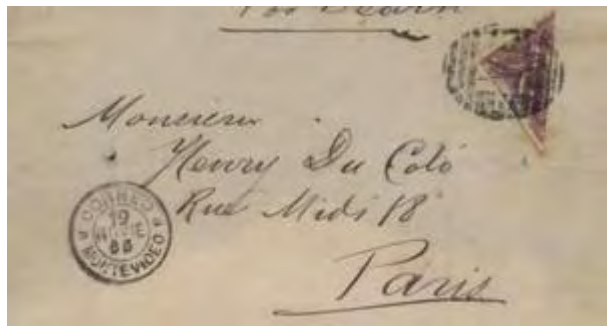 Monsieur
Henry Du Coló
Rue Midi 18
Paris
CORREO
19
86
MONTEVIDEO